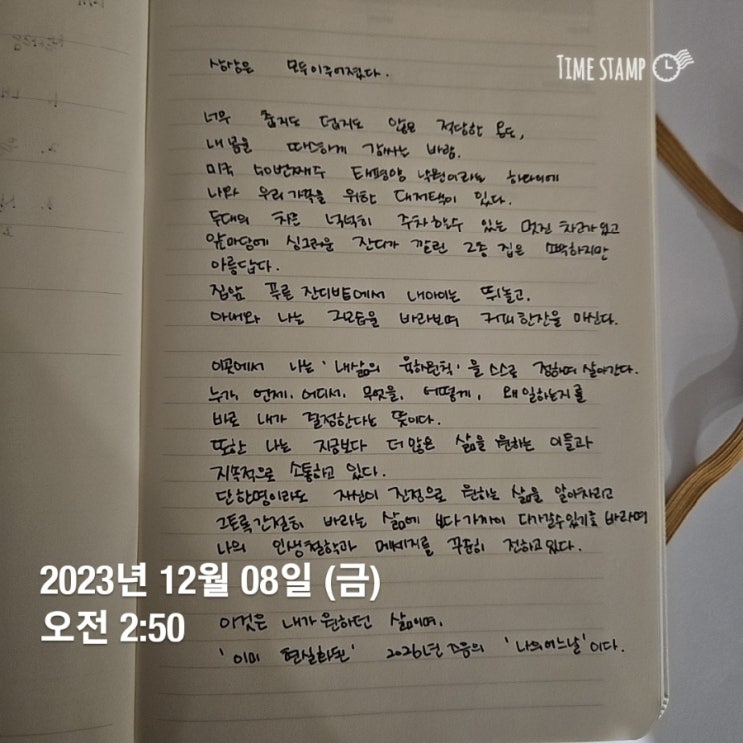 TIME STAMP
상상은 모두 이루어졌다.
너무 춥지도 덥지도 않은 적당한 온도,
내 몸을 따스하게 감싸는 바람.
미국 50번째 주 태평양 낙원이라는 하와이에
나와 우리 가족을 위한 대저택이 있다.
두대의 차를 넉넉히 주차할수 있는 멋진 차고가 있고
앞마당에 싱그러운 잔디가 깔린 2층 집은 소박하지만
아름답다.
집앞 푸른 잔디밭에서 내아이는 뛰놀고,
아내와 나는 그모습을 바라보며 커피 한잔을 마신다.
이곳에서 나는 '내삶의 육하원칙'을 스스로 정하며 살아간다.
누가, 언제, 어디서, 무엇을, 어떻게, 왜 일하는지를
바로 내가 결정한다는 뜻이다.
또한 나는 지금보다 더 많은 삶을 원하는 이들과
지속적으로 소통하고 있다.
단 한명이라도 자신이 진정으로 원하는 삶을 알아차리고
그토록 간절히 바라는 삶에 보다 가까이 다가갈수 있기를 바라며
나의 인생철학과 메세지를 꾸준히 전하고 있다.
이것은 내가 원하던 삶이며,
'이미 현실화된' 2026년 즈음의 '나의 어느날'이다.
2023년 12월 08일 (금)
오전 2:50